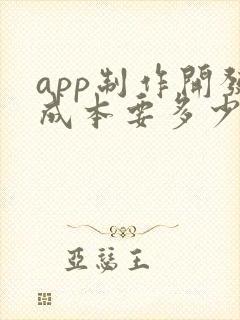 app制作開發
成本要多少
亞瑟王